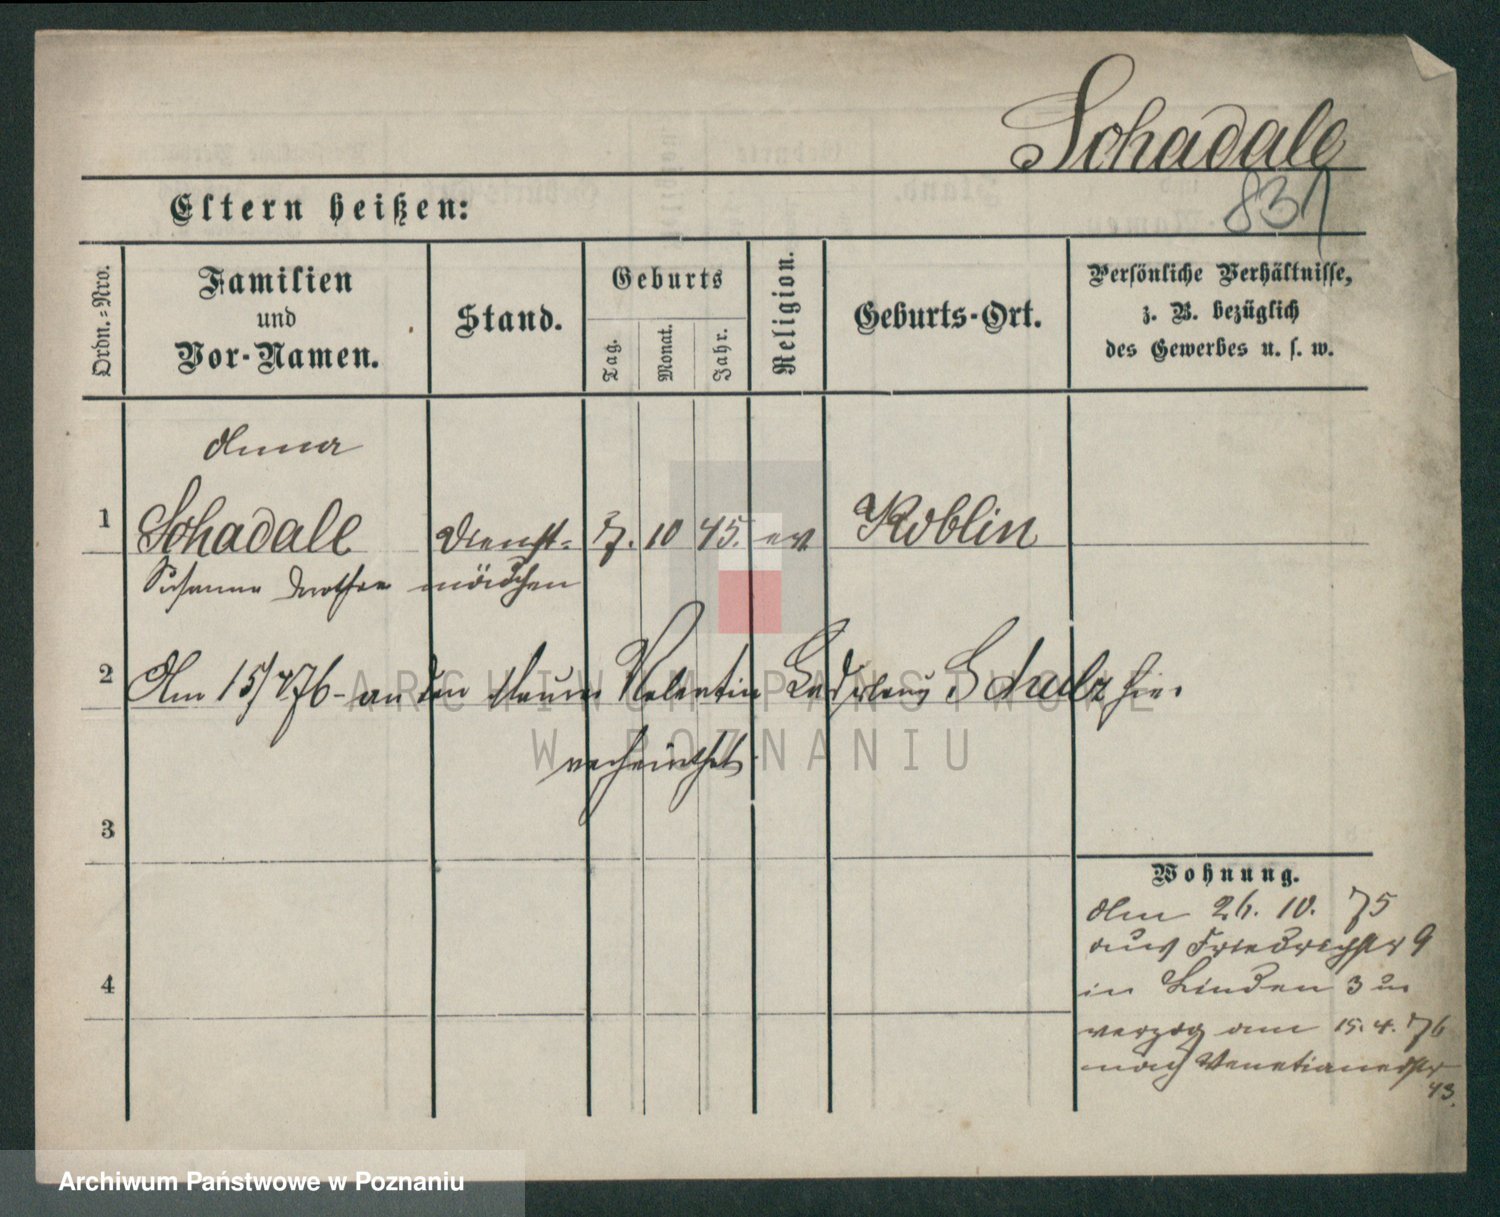 Schadale
831
Eltern heißen:
Ordn.-Nro.
Familien
und
Vor-Namen.
Stand.
Geburts
Tag.
Monat.
Jahr.
Religion.
Geburts-Ort.
Persönliche Verhältnisse,
z. B. bezüglich
des Gewerbes u. s. w.
Anna
1 Schadale Dienst- 7. 10 45. ev Koblin
Susanna Dorothea mädchen
2 Am 15/4 76 - an den Maurer Valentin Schulz hier
verheirathet
3
Wohnung.
Am 26. 10. 75
aus Friedrichstr 9
in Linden 3 u
4
verzog am 15. 4. 76
nach Venetianerstr
43.
ARCHIWUM PAŃSTWOWE
W POZNANIU
Archiwum Państwowe w Poznaniu